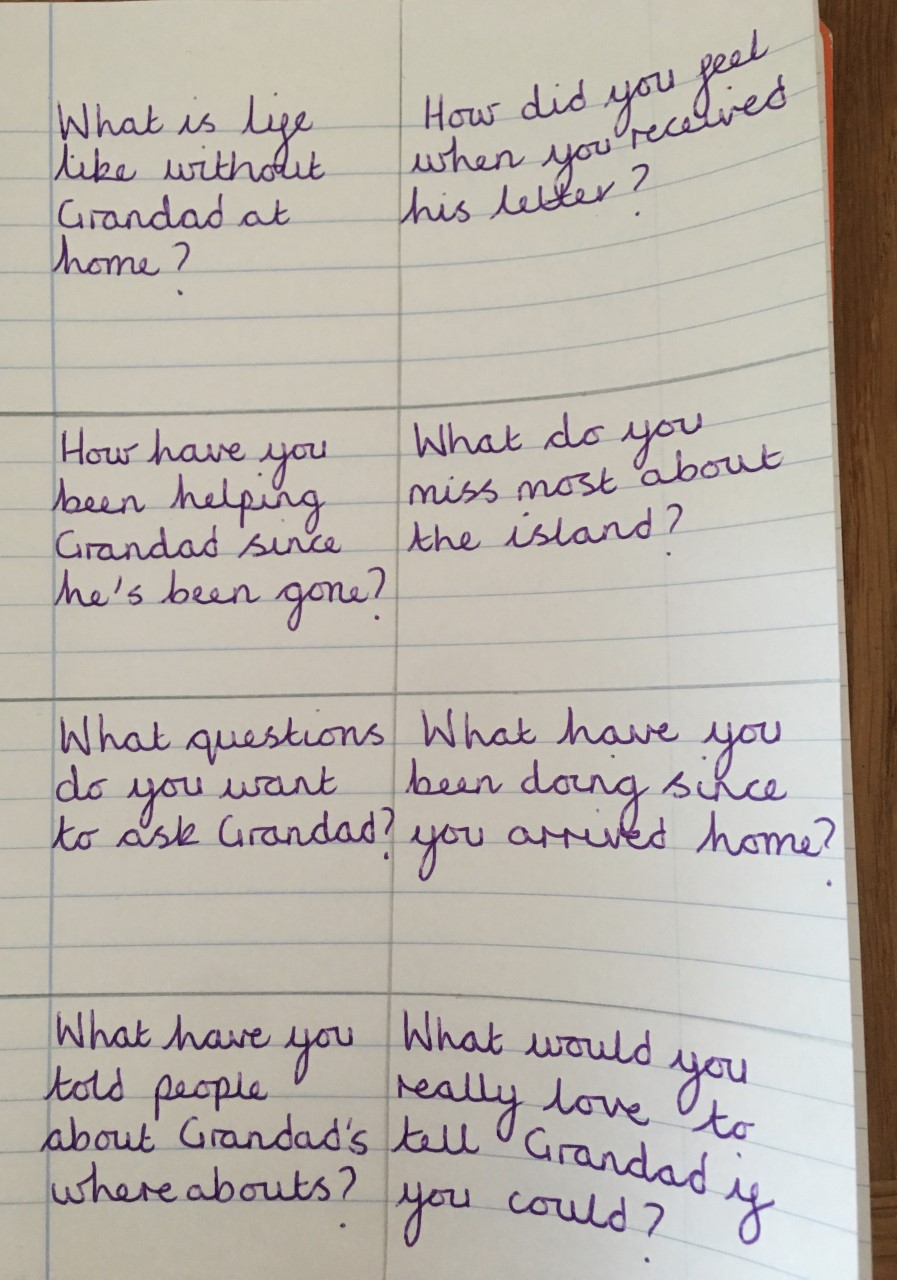 What is life
like without
Grandad at
home?
How did you feel
when you received
his letter?
How have you
been helping
Grandad since
he's been gone?
What do you
miss most about
the island?
What questions
do you want
to ask Grandad?
What have you
been doing since
you arrived home?
What have you
told people
about Grandad's
whereabouts?
What would you
really love to
tell Grandad if
you could?